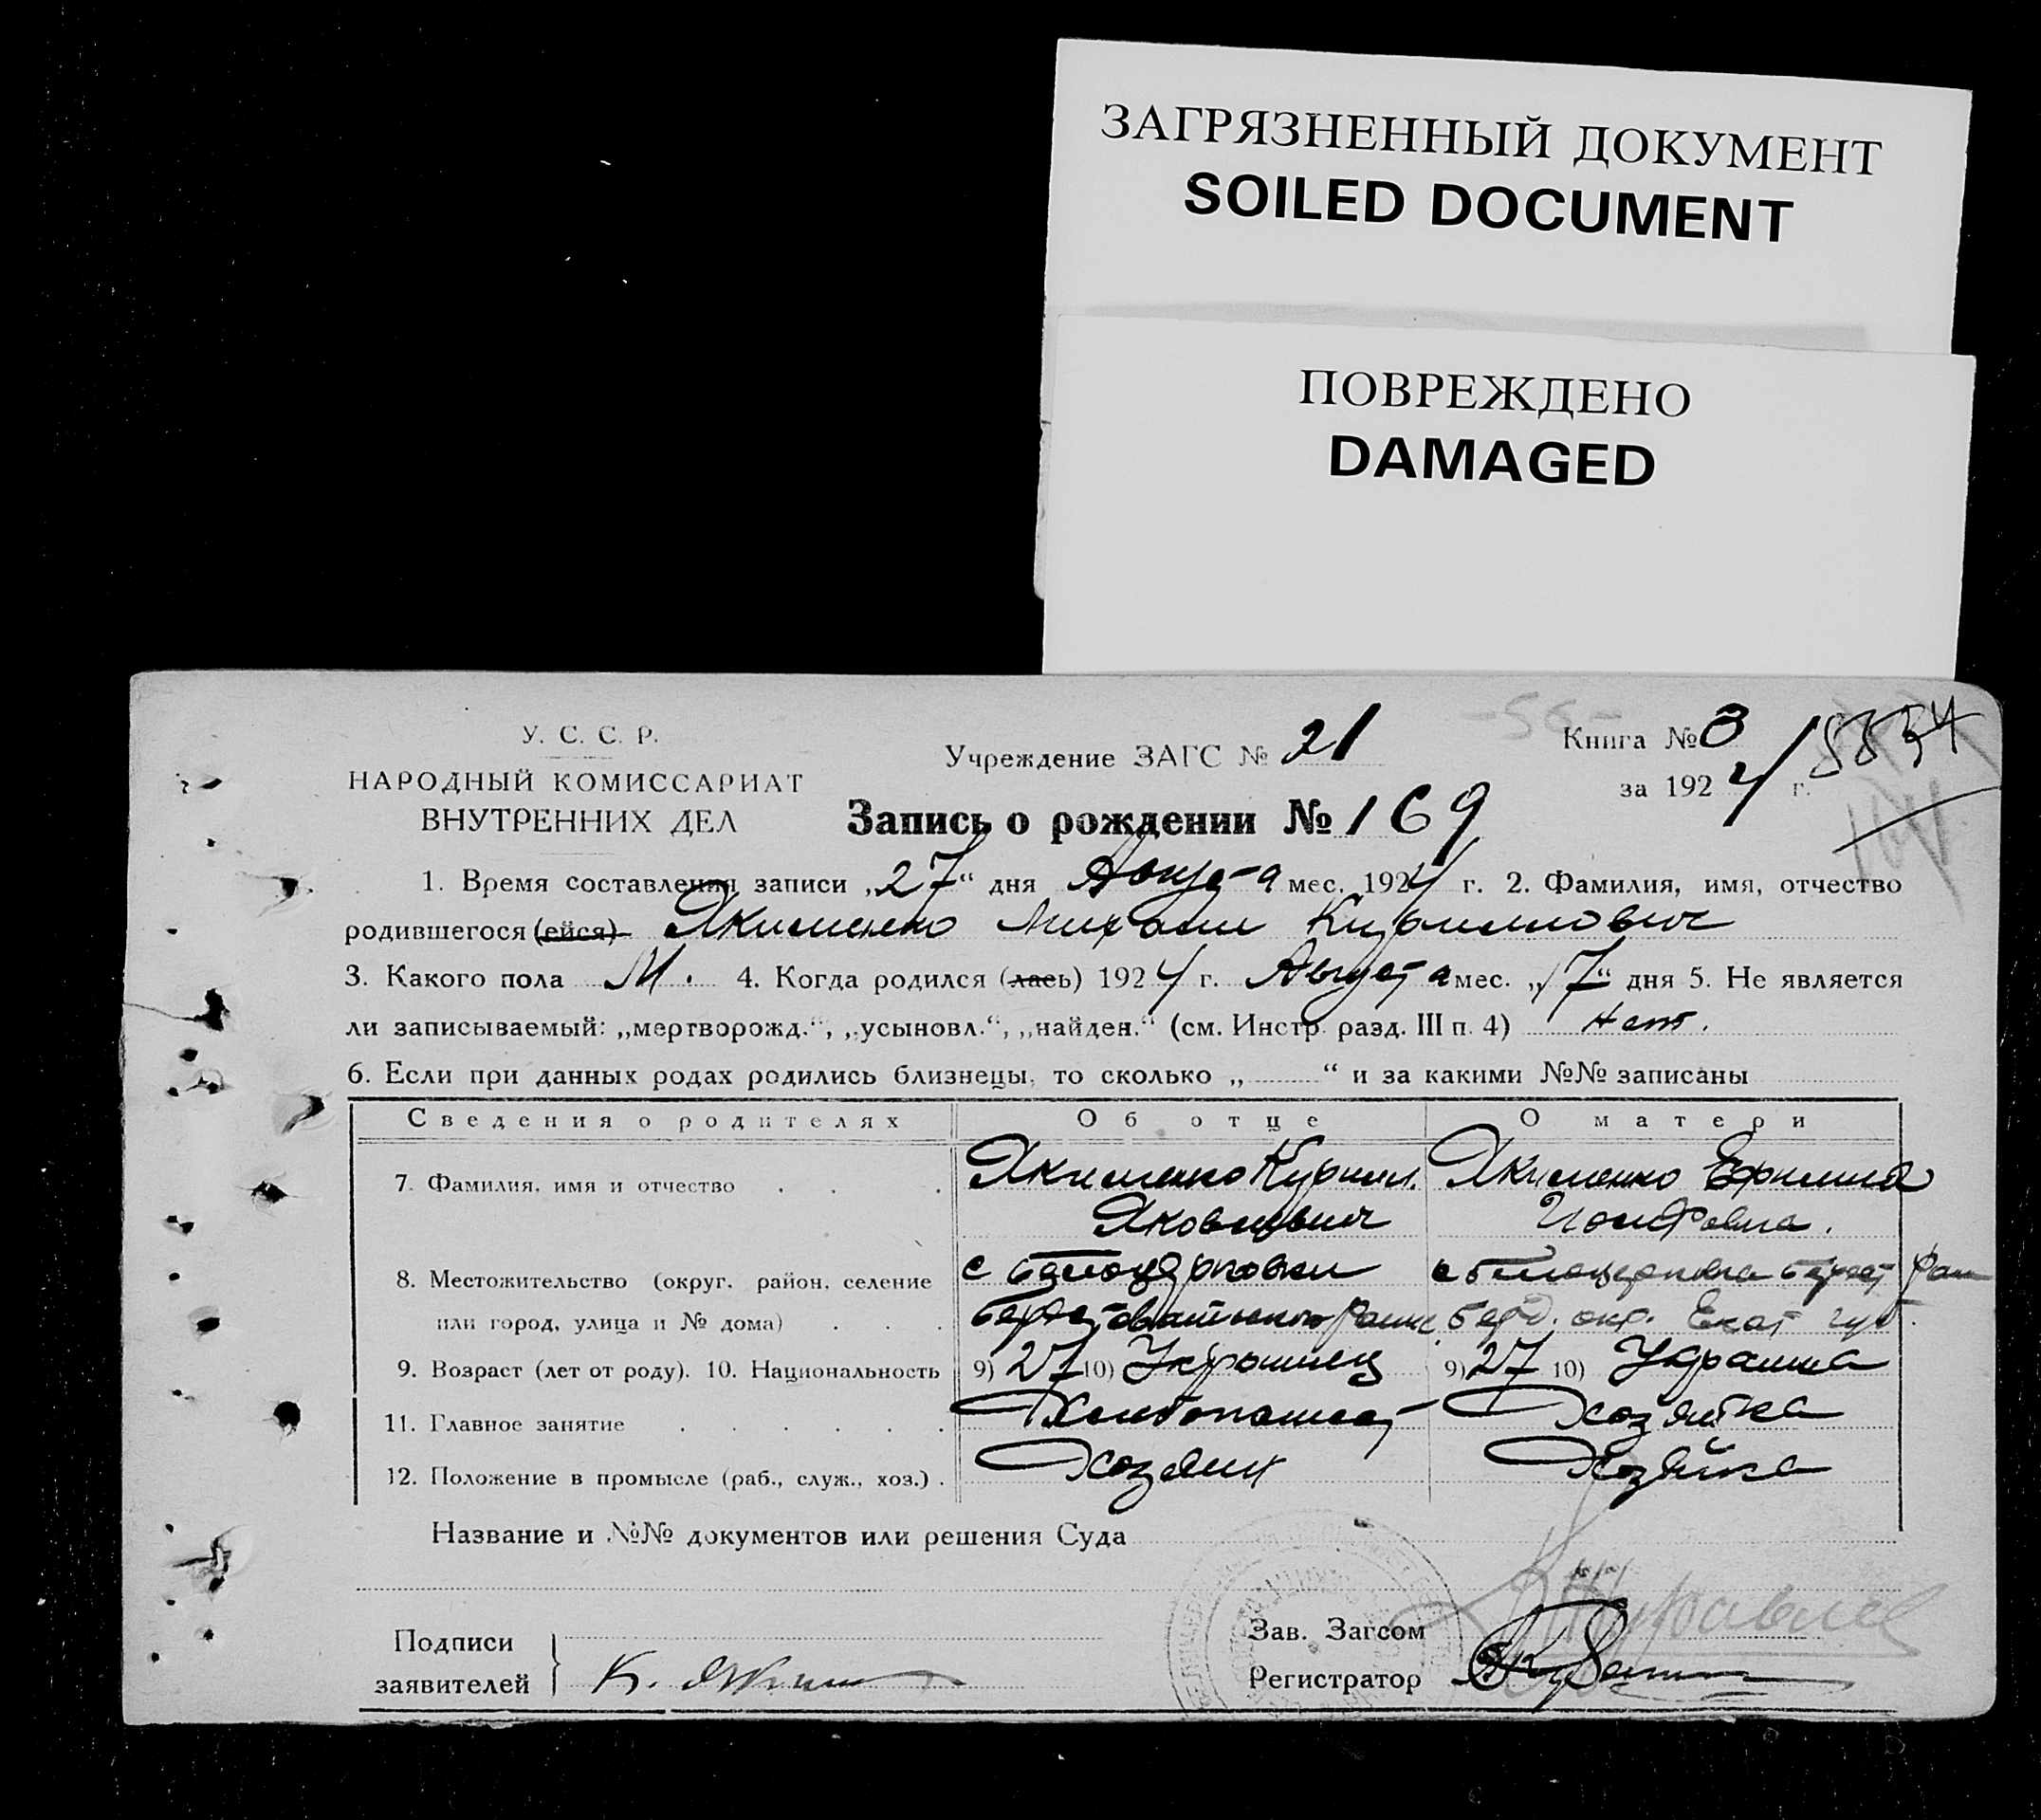 ЗАГРЯЗНЕННЫЙ ДОКУМЕНТ
SOILED DOCUMENT
ПОВРЕЖДЕНО
DAMAGED
У. С. С. Р.
НАРОДНЫЙ КОМИССАРИАТ
ВНУТРЕННИХ ДЕЛ
Учреждение ЗАГС № 21
-56-
Книга № 3
за 1924 г.
Запись о рождении № 169
1. Время составления записи „27“ дня Августа мес. 1924 г. 2. Фамилия, имя, отчество
родившегося (ейся) Якименко Михаил Кириллович
3. Какого пола М. 4. Когда родился (лась) 1924 г. Августа мес. „17“ дня 5. Не является
ли записываемый: „мертворожд.“, „усыновл.“, „найден.“ (см. Инстр. разд. III п. 4) нет.
6. Если при данных родах родились близнецы, то сколько „ “ и за какими №№ записаны
Сведения о родителях Об отце О матери
7. Фамилия, имя и отчество Якименко Кирилл. Якименко
Яковлевич Иосифовна.
8. Местожительство (округ, район, селение с
или город, улица и № дома) Берд. окр. Екат губ.
9. Возраст (лет от роду). 10. Национальность 9) 27 10) Украинец 9) 27 10) Украинка
11. Главное занятие Хлебопашест Хозяйка
12. Положение в промысле (раб., служ., хоз.) Хозяин Хозяйка
Название и №№ документов или решения Суда
Зав. Загсом
Подписи
заявителей К.
Регистратор